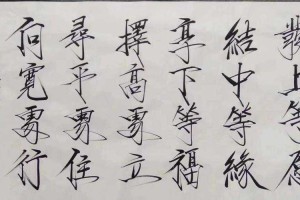 發上等愿
結中等緣
享下等福
擇高處立
尋平處住
向寬處行